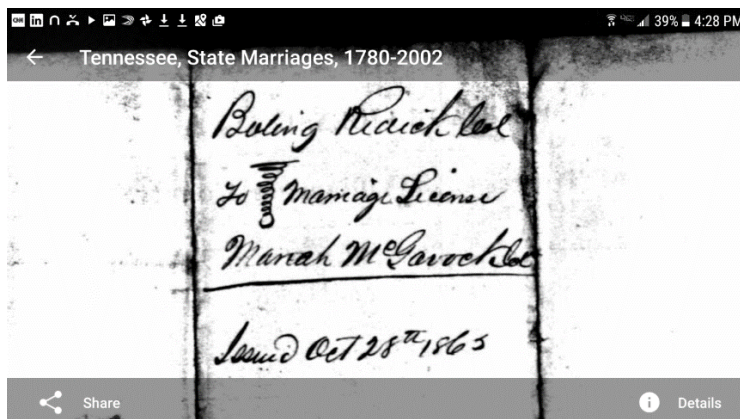 39% 4:28 PM
Tennessee, State Marriages, 1780-2002
Boling Redick Col
To Marriage License
Mariah McGavock Col
Issued Oct 28th 1865
Share Details